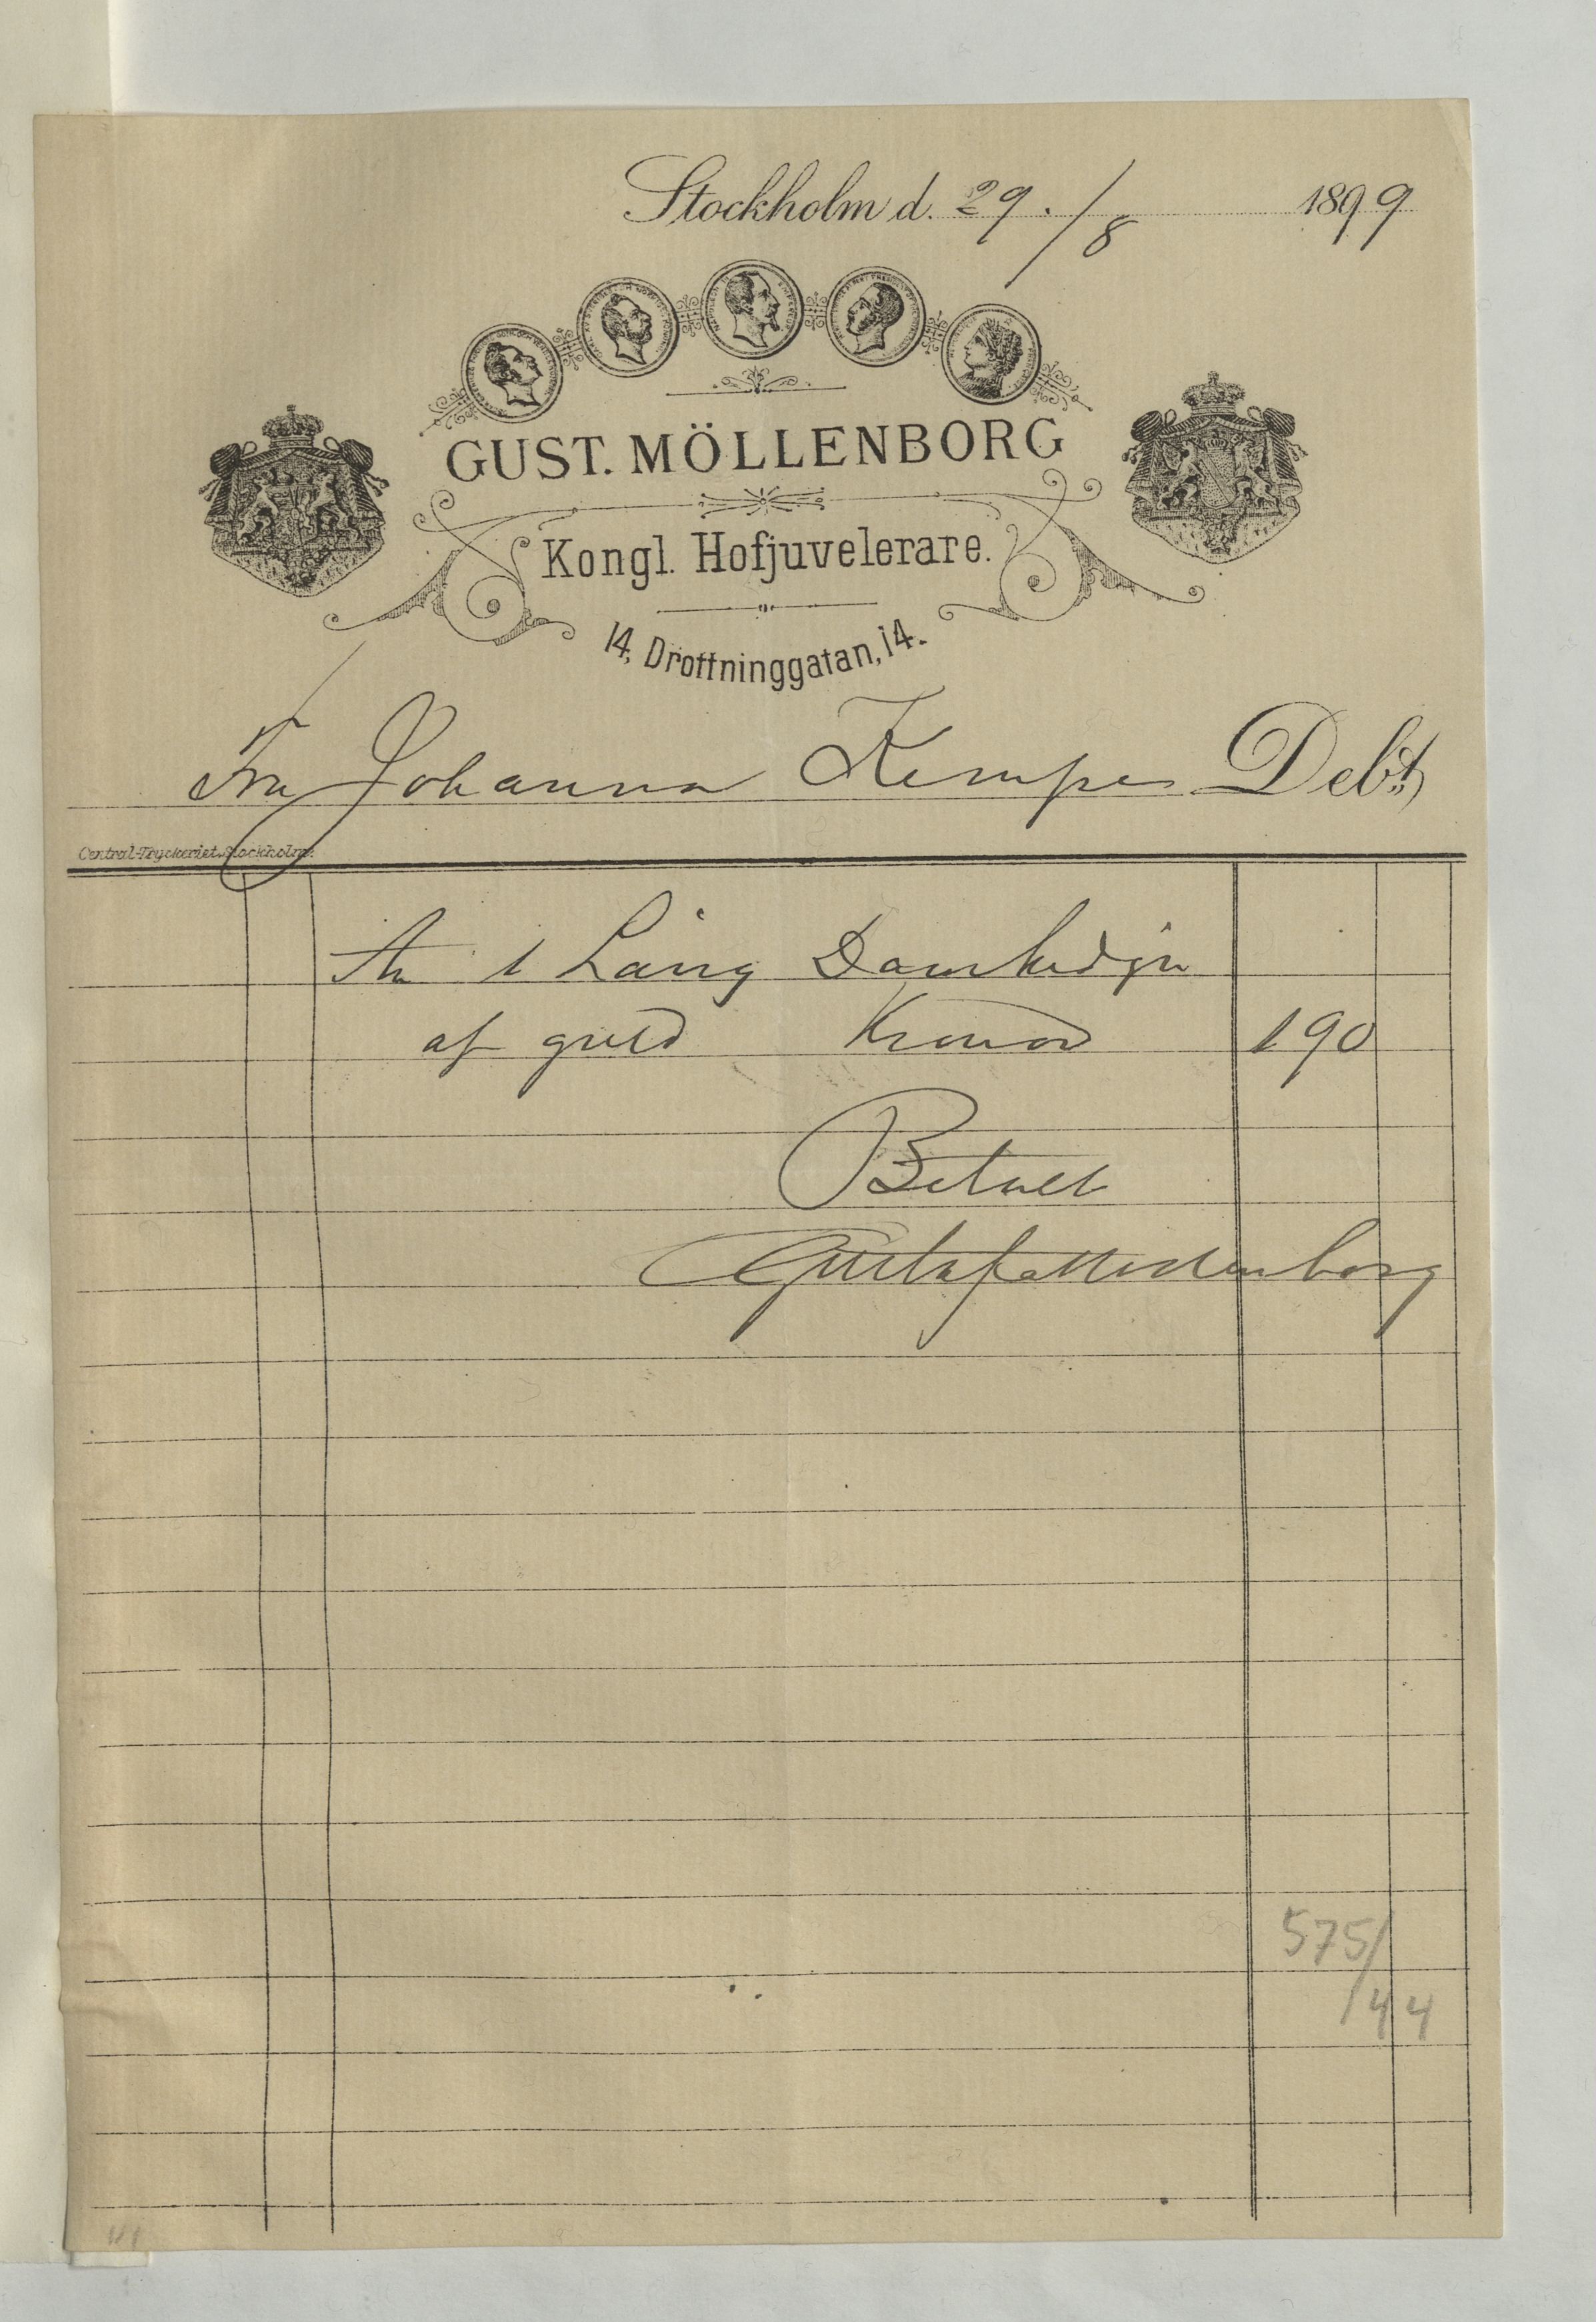 Stockholm d. 29./8 1899
GUST. MÖLLENBORG
Kongl. Hofjuvelerare.
14, Drottninggatan, 14.
Fru Johanna Kempe Debt,
Central-Tryckeriet, Stockholm.
An 1 Lång Damkedja
af guld Kronor 190
Betalt
Gustaf Möllenborg
575/
/44